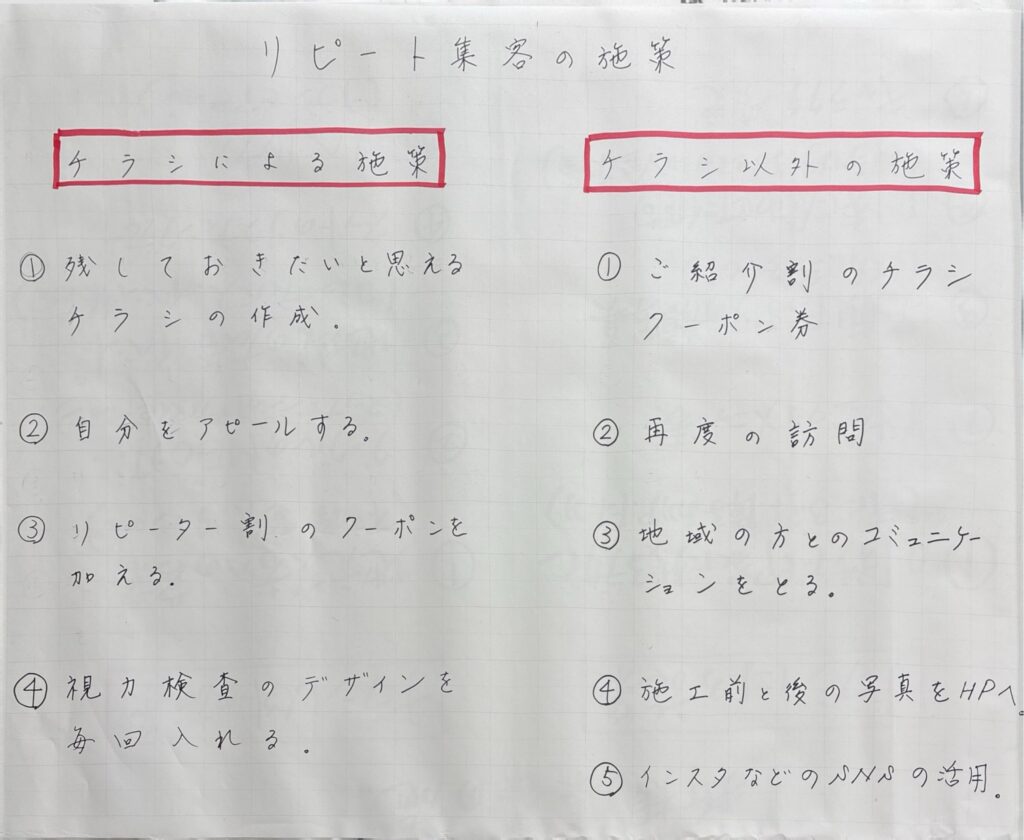 リピート集客の施策
チラシによる施策
①残しておきだいと思える
チラシの作成。
②自分をアピールする。
③リピーター割のクーポンを
加える。
④視力検査のデザインを
毎回入れる。
チラシ以外の施策
①ご紹介割のチラシ
クーポン券
②再度の訪問
③地域の方とのコミュニケー
ションをとる。
④施工前と後の写真をHPへ。
⑤インスタなどのSNSの活用。